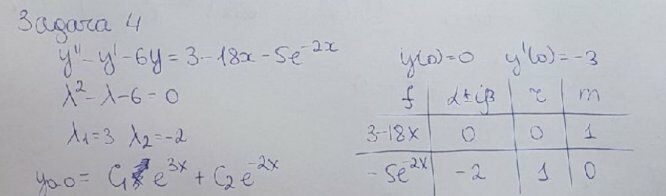 Задача 4
y'' - y' - 6y = 3 - 18x - 5e^{-2x}    y(0)=0    y'(0)=-3
λ² - λ - 6 = 0
λ₁ = 3  λ₂ = -2
y_{o.o} = C₁ e^{3x} + C₂ e^{-2x}
f | α±iβ | r | m
3-18x | 0 | 0 | 1
-5e^{-2x} | -2 | 1 | 0